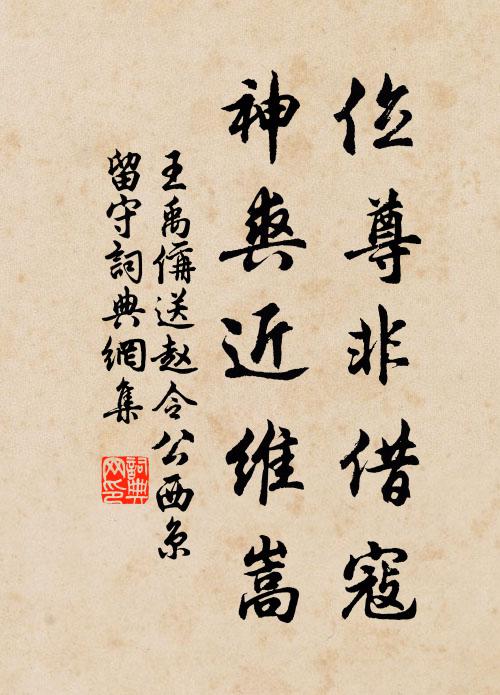 位尊非借寇
神爽近維嵩
王禹偁送赵令公西京
留守詞典網集
詞典
网印